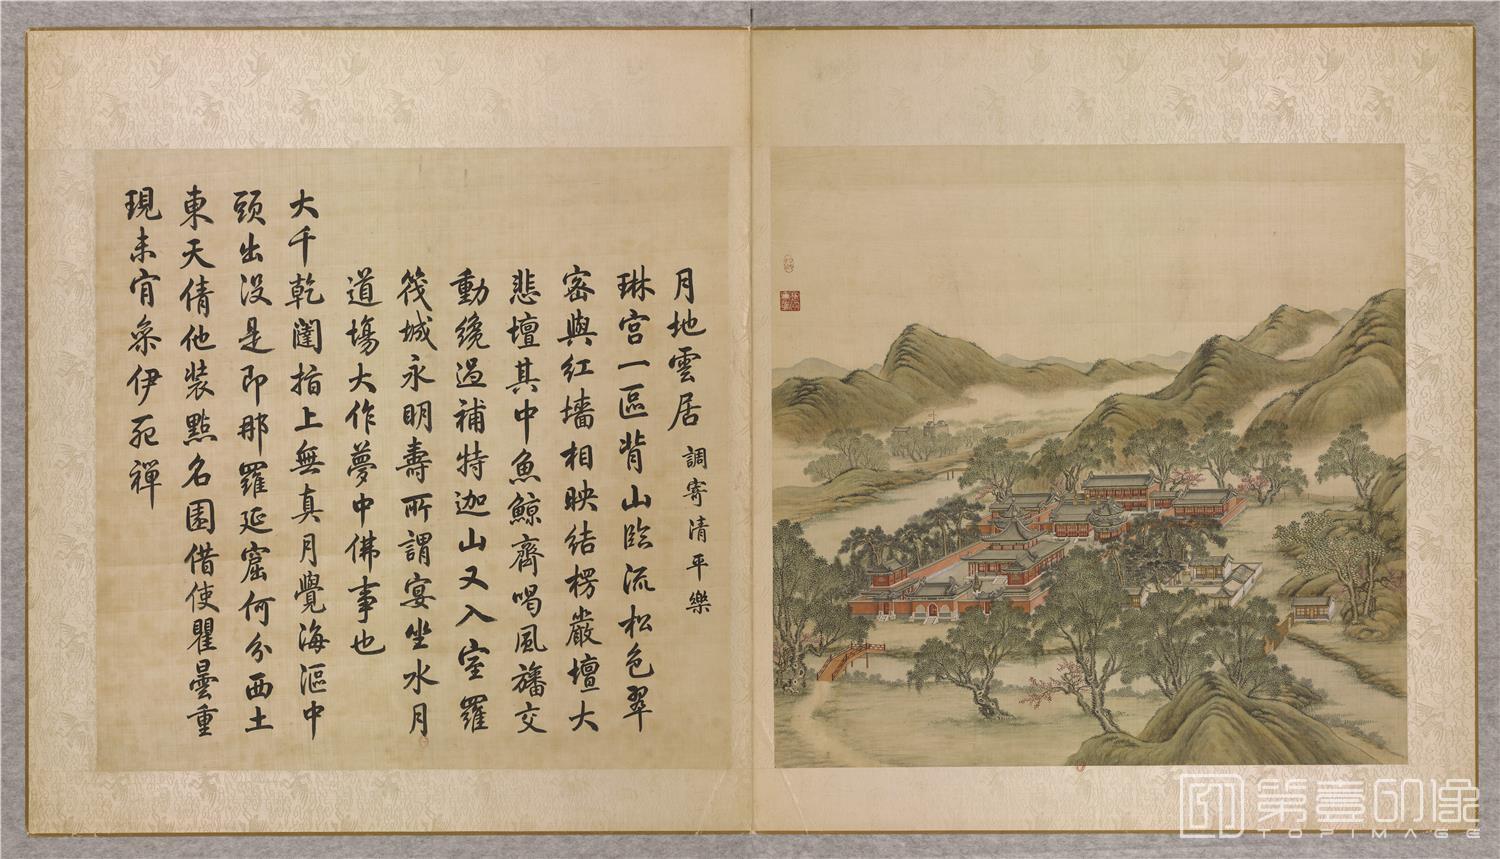 月地雲居 調寄清平樂
琳宮一區背山臨流松色翠
密與紅墻相映結楞嚴壇大
悲壇其中魚鯨齊喝風旛交
動纔過補特迦山又入室羅
筏城永明壽所謂宴坐水月
道場大作夢中佛事也
大千乾闥指上無真月覺海漚中
頭出沒是即那羅延窟何分西土
東天倩他裝點名園借使瞿曇重
現未肎參伊死禪
第壹印像
TOPIMAGE